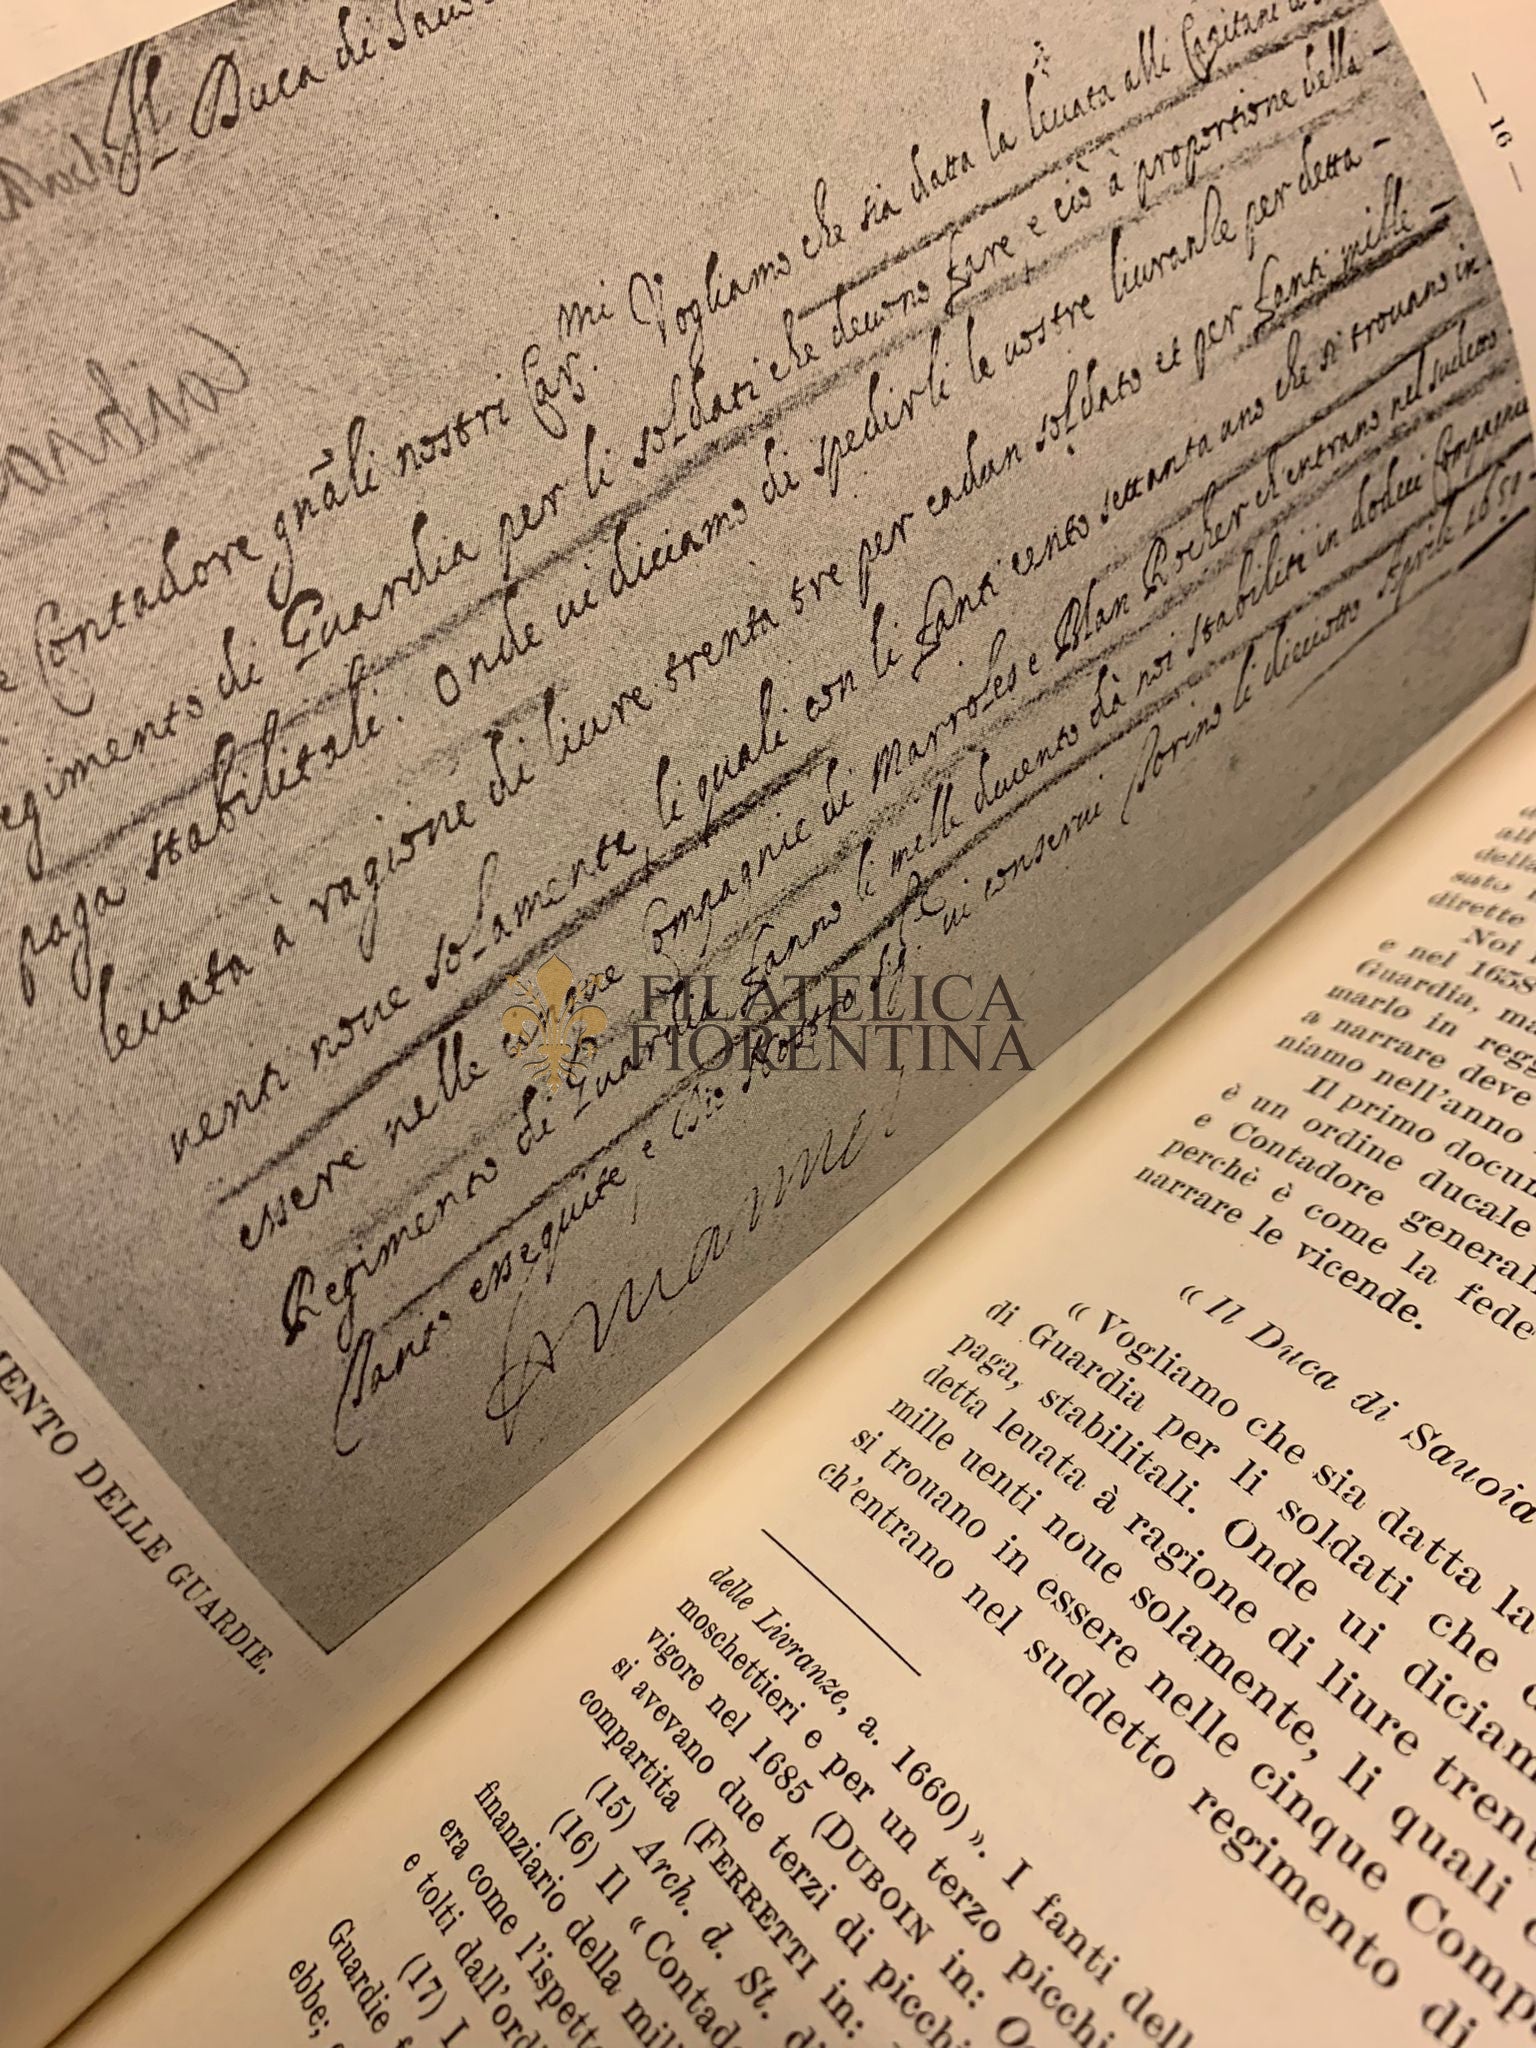 Il Duca di Sau
Contadore gnãli nostri Car.mi Vogliamo che sia datta la leuata alli Capitani
Regimento di Guardia per li soldati che deuono fare e ciò à proportione della
paga stabilitali. Onde ui diciamo di spedirli le nostre liuranse per detta
leuata à ragione di liure trenta tre per cadun soldato et per fanti mille
uenti noue solamente, li quali con li fanti cento settanta uno che si trouano in
essere nelle cinque Compagnie di Marroles e Blan Rocher ch'entrano nel sudetto
Regimento di Guardia fanno li mille ducento dà noi stabiliti in dodici Compagnie
Tanto esseguite, e Dio Nostro Sig.re ui conserui Torino li dieciotto Aprile 1659
MENTO DELLE GUARDIE.
FILATELICA
FIORENTINA
— 16 —
all'
della
sato
dirette
Noi
e nel 1658
Guardia, ma
marlo in regg
a narrare deve
niamo nell'anno
Il primo docum
è un ordine ducale
e Contadore general
perchè è come la fede
narrare le vicende.
« Il Duca di Sauoia
« Vogliamo che sia datta la
di Guardia per li soldati che
paga, stabilitali. Onde ui diciam
detta leuata à ragione di liure trent
mille uenti noue solamente, li quali
si trouano in essere nelle cinque Comp
ch'entrano nel suddetto regimento di
delle Livranze, a. 1660) ». I fanti dell
moschettieri e per un terzo picchi
vigore nel 1685 (DUBOIN in:
si avevano due terzi di picchi
compartita (FERRETTI in:
(15) Arch. d. St. di
(16) Il « Contad
finanziario della mili
era come l'ispett
e tolti dall'ordi
(17) I
Guardie f
ebbe;